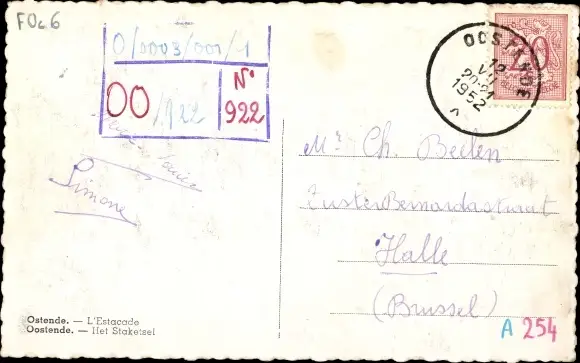 FOc6
0/0003/001/1
00/922
N°
922
OOSTENDE
12
VII
20-21
1952
Simone
Mr Ch. Beelen
ZusterBernardastraat
Halle
(Brussel)
Ostende. — L'Estacade
Oostende. — Het Staketsel
A 254